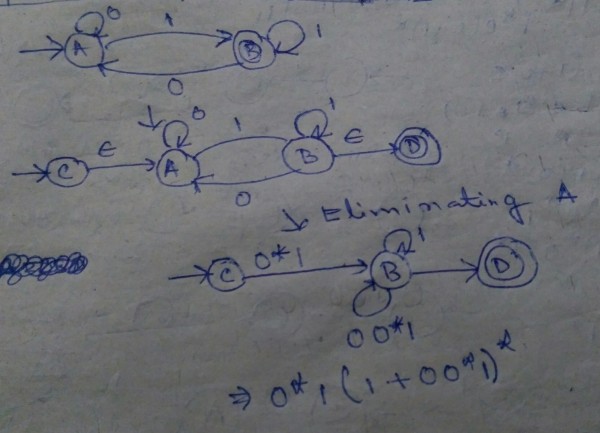 0
A 1 B 1
0
0 1
C ε A 1 B ε D
0
Eliminating A
C 0*1 B 1 D
00*1
⇒ 0*1(1+00*1)*